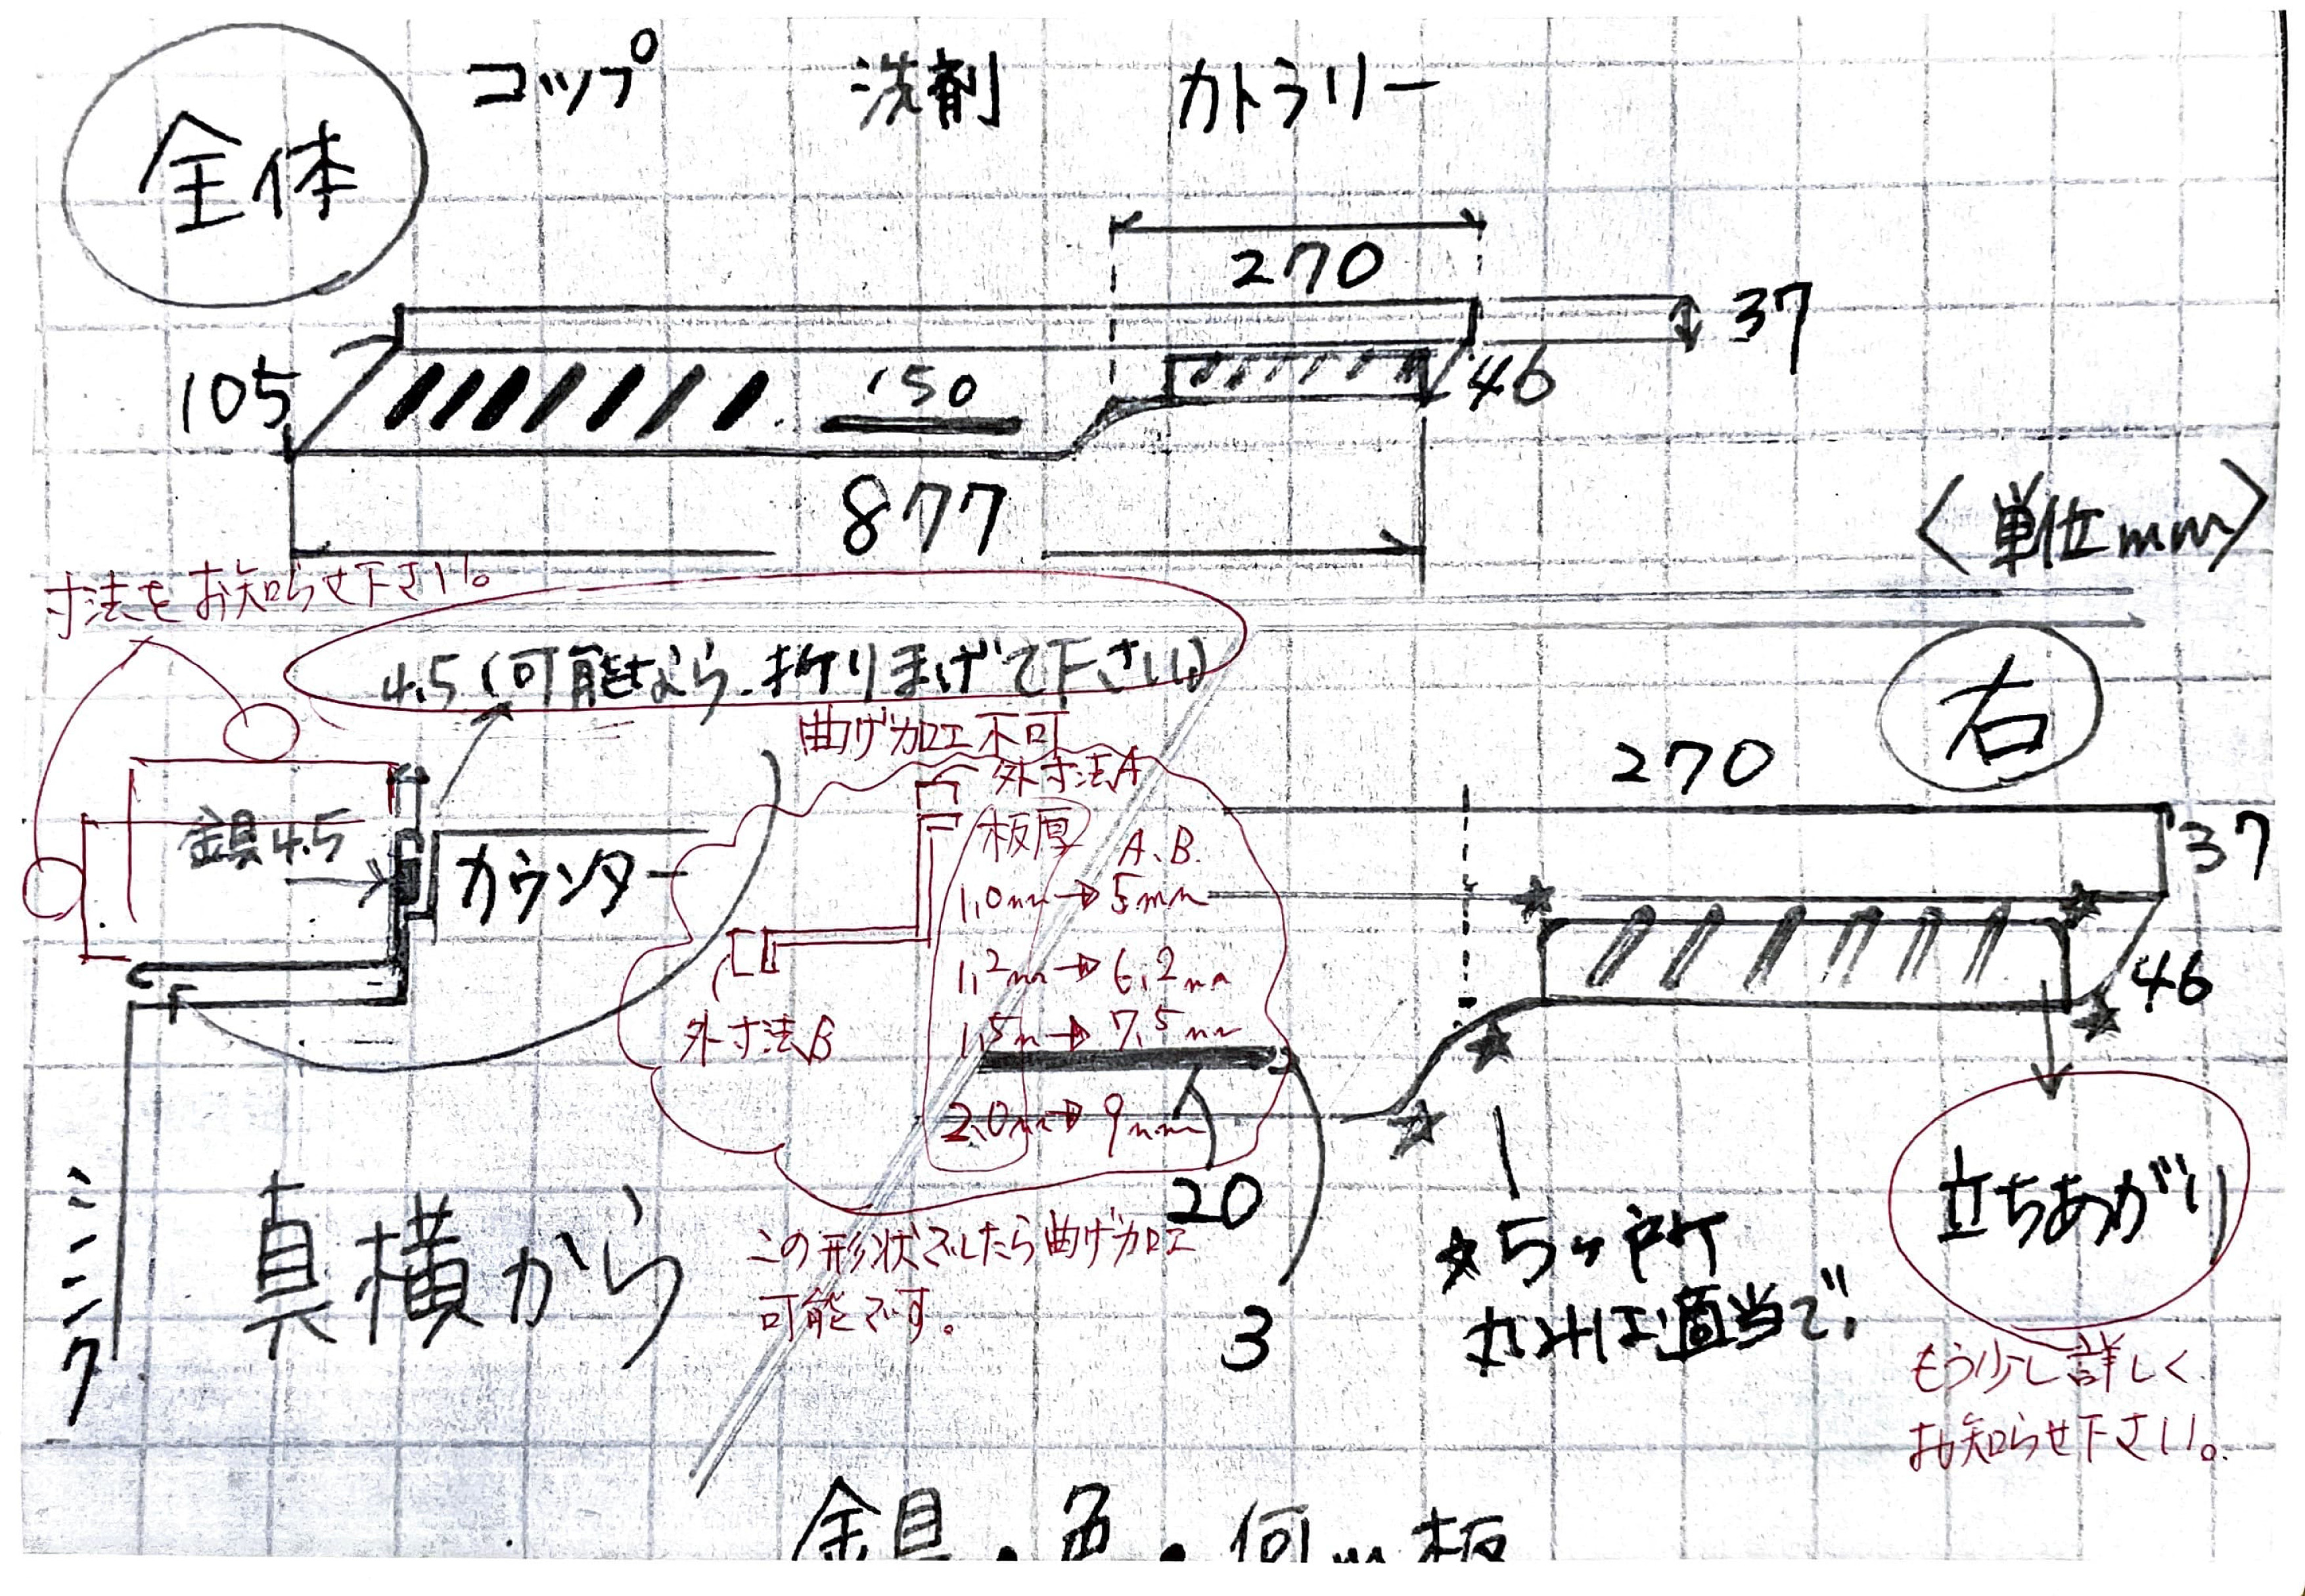 全体
コップ 洗剤 カトラリー
270
37
105
150
46
877
<単位mm>
寸法をお知らせ下さい。
4.5(可能なら折りまげて下さい)
曲げ加工不可
右
270
外寸法A
金具4.5
カウンター
板厚 A、B
37
1.0mm→5mm
1.2mm→6.2mm
46
外寸法B
1.5m→7.5mm
2.0mm→9mm
シンク
真横から
20
3
この形状でしたら曲げ加工
可能です。
☆5ヶ所
カンドは適当で
立ちあがり
もう少し詳しく
お知らせ下さい。
金具・色・何m板